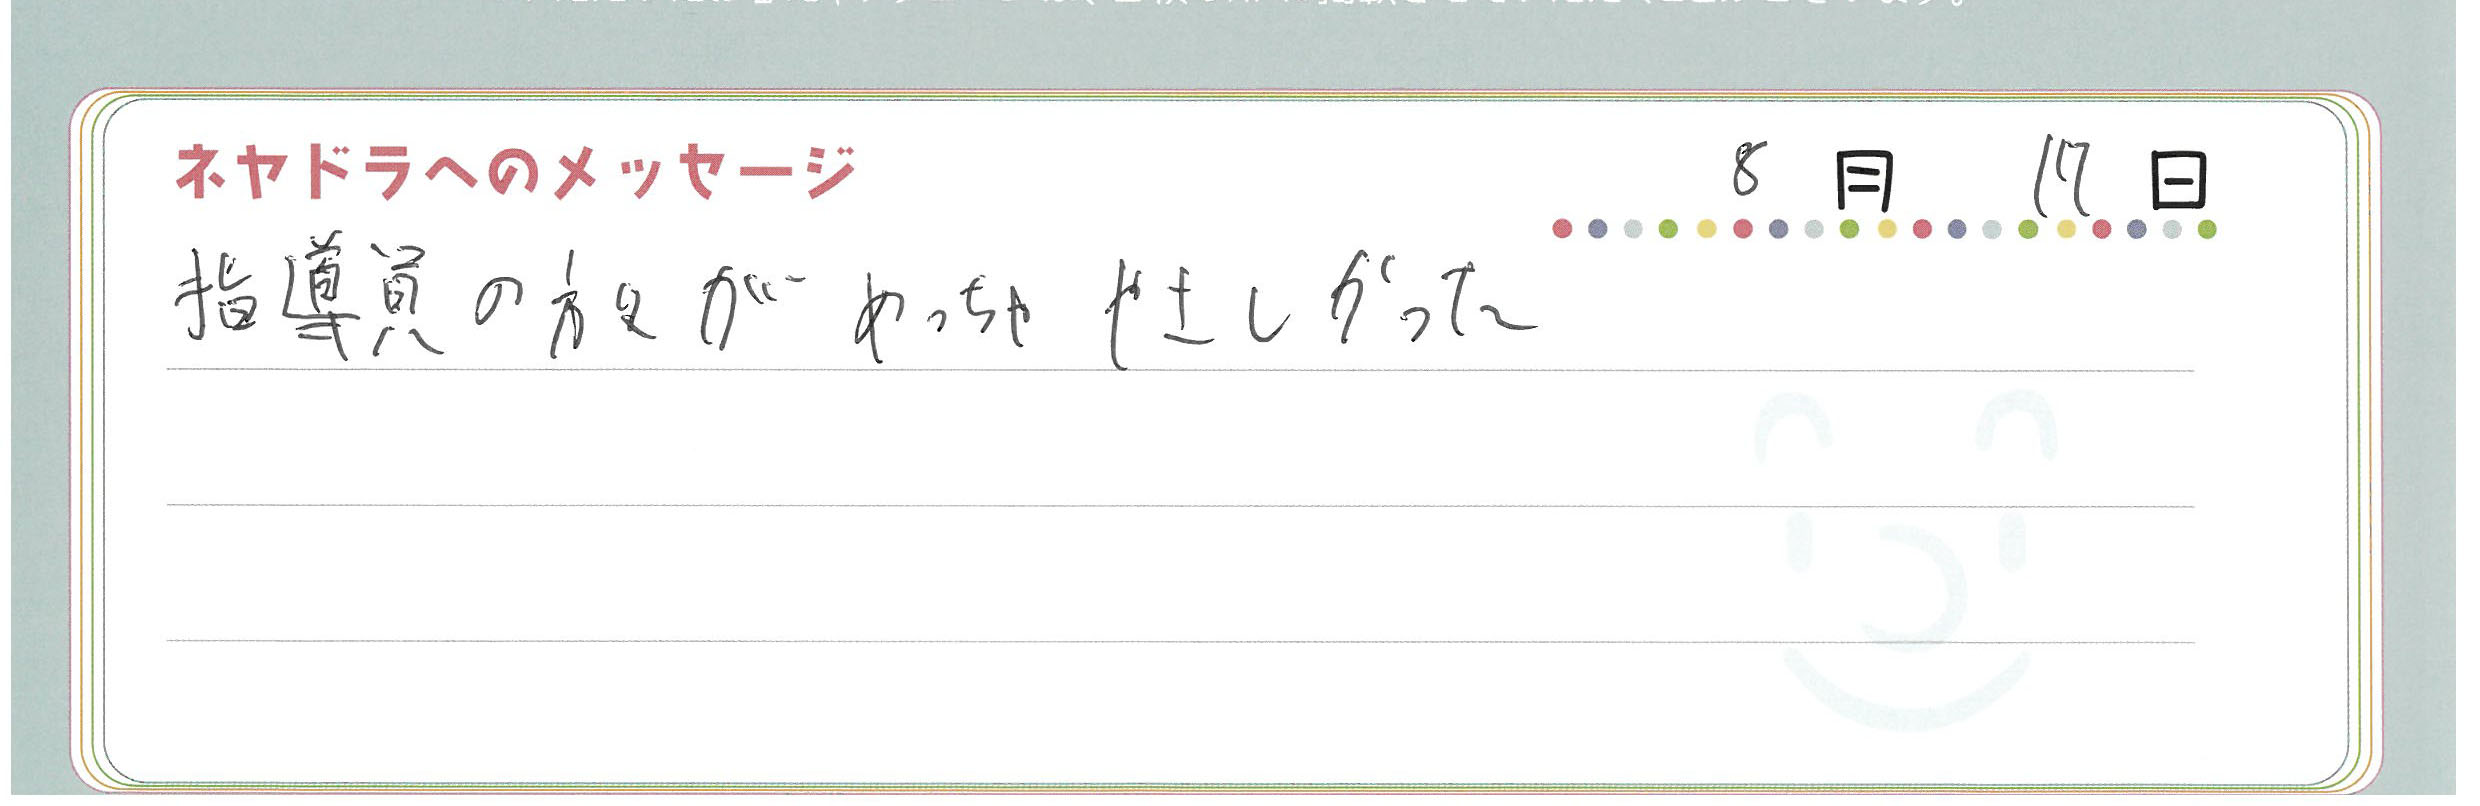 ネヤドラへのメッセージ
8月 17日
指導員の方々が めっちゃ やさしかった